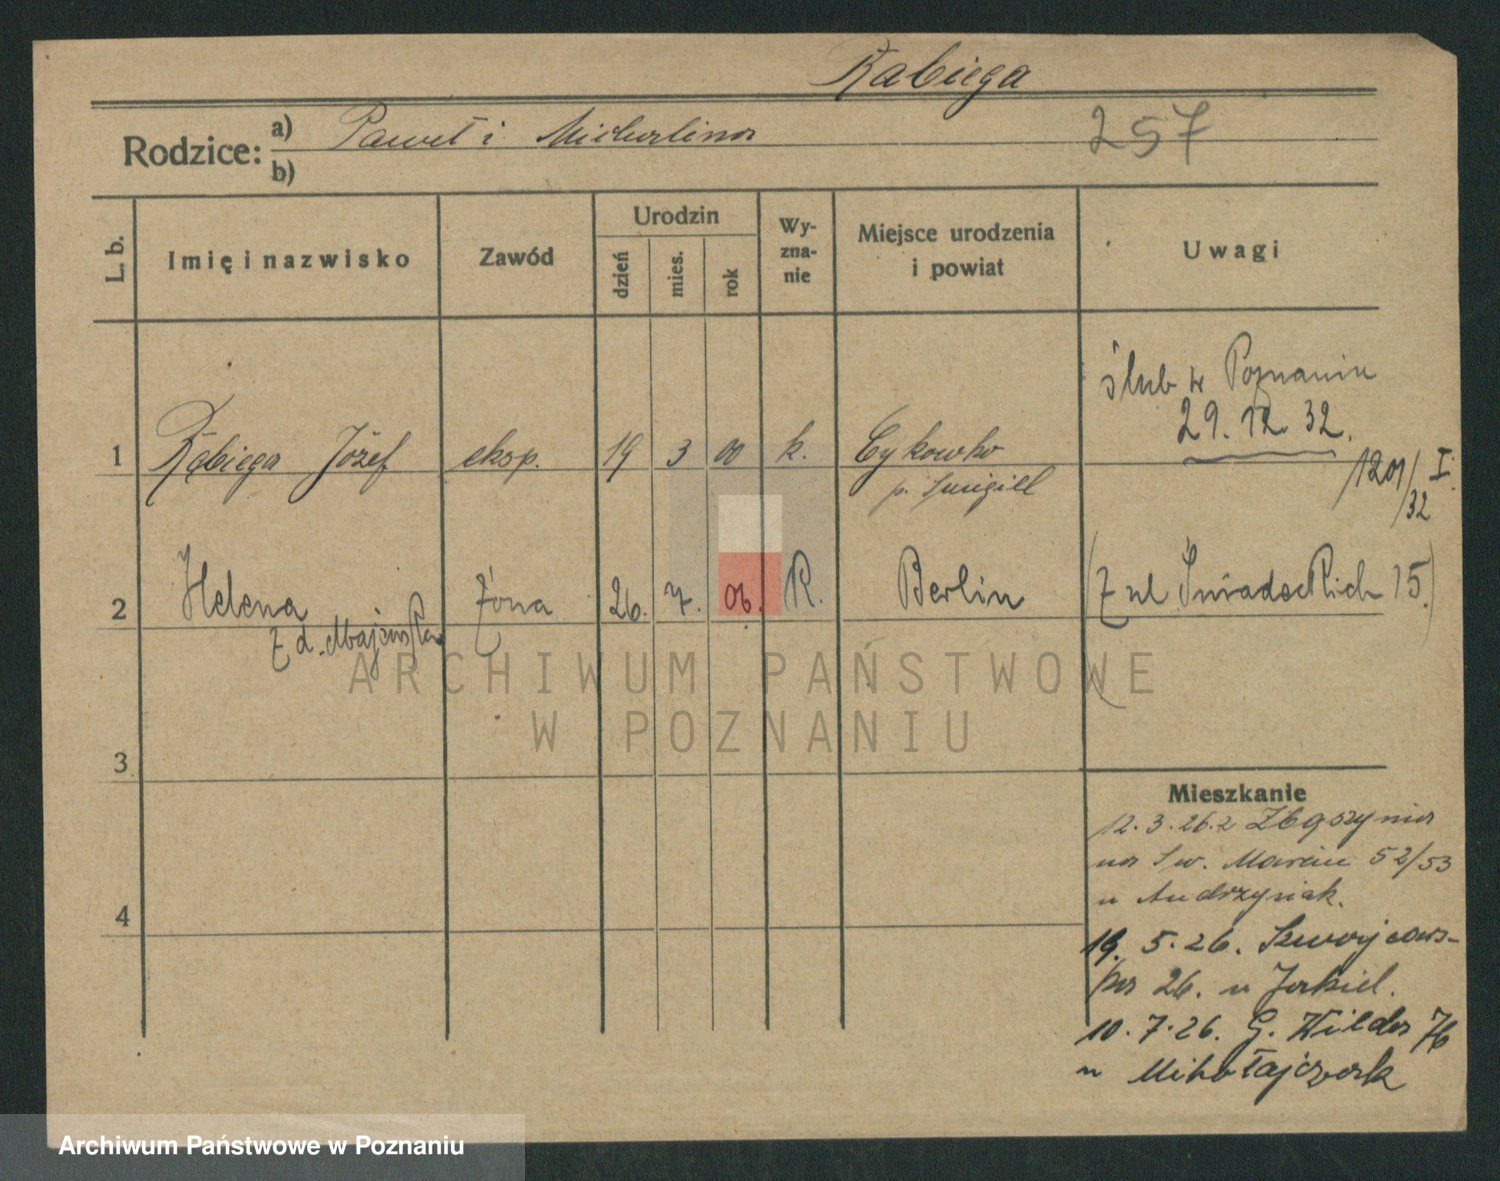 Rabiega
Rodzice: a) Paweł i Michalina
b)
257
L. b. Imię i nazwisko Zawód Urodzin dzień mies. rok Wyznanie Miejsce urodzenia i powiat Uwagi
ślub w Poznaniu
29. 12. 32.
1 Rabiega Józef eksp. 19 3 00 k. Cykowko
p. Śmigiel
1201/32 I.
2 Helena żona 26. 7. 06. R. Berlin (z ul Śniadeckich 15.)
z d. Majewska
3
4
Mieszkanie
12. 3. 26. z Zbąszynia
na Św. Marcin 52/53
u Andrzyniak.
19. 5. 26. Szwajcars-
ka 26. u Jaskiel.
10. 7. 26. G. Wilda 76
u Mikołajczak
ARCHIWUM PAŃSTWOWE
W POZNANIU
Archiwum Państwowe w Poznaniu